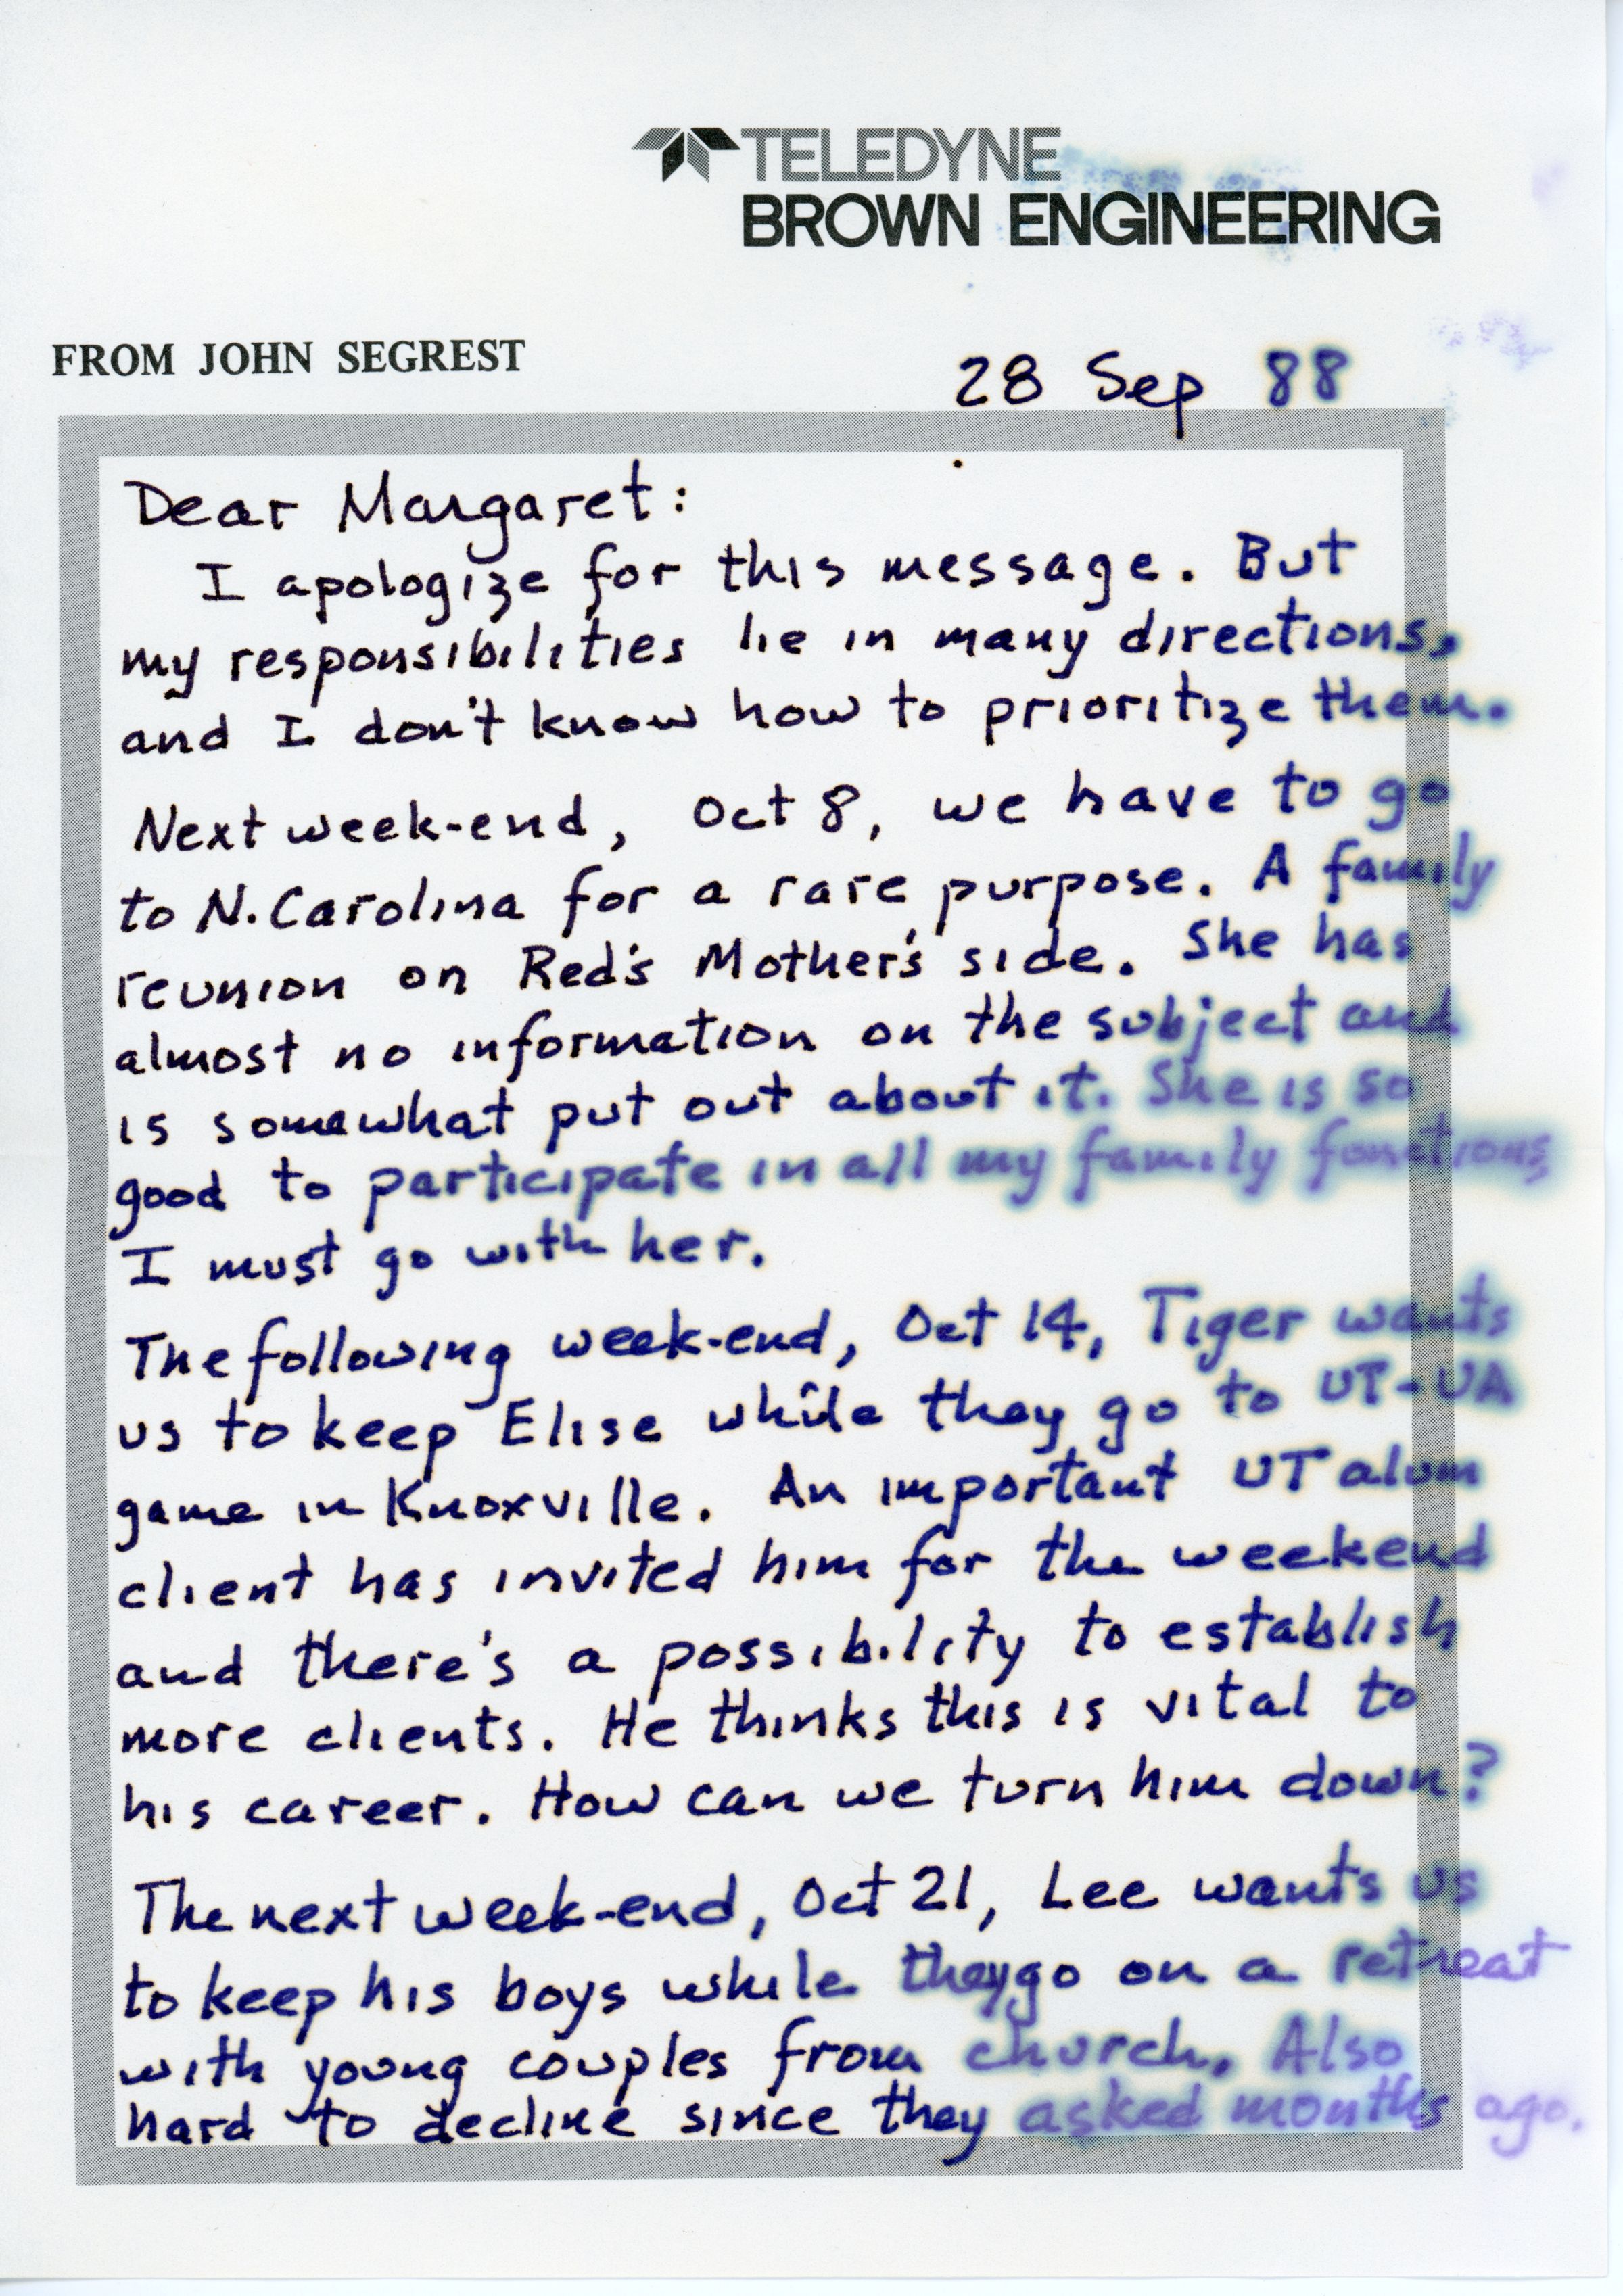 TELEDYNE
BROWN ENGINEERING
FROM JOHN SEGREST
28 Sep 88
Dear Margaret:
I apologize for this message. But
my responsibilities lie in many directions,
and I don't know how to prioritize them.
Next week-end, Oct 8, we have to go
to N. Carolina for a rare purpose. A family
reunion on Red's Mother's side. She has
almost no information on the subject and
is somewhat put out about it. She is so
good to participate in all my family functions
I must go with her.
The following week-end, Oct 14, Tiger wants
us to keep Elise while they go to UT-UA
game in Knoxville. An important UT alum
client has invited him for the weekend
and there's a possibility to establish
more clients. He thinks this is vital to
his career. How can we turn him down?
The next week-end, Oct 21, Lee wants us
to keep his boys while they go on a retreat
with young couples from church. Also
hard to decline since they asked months ago.